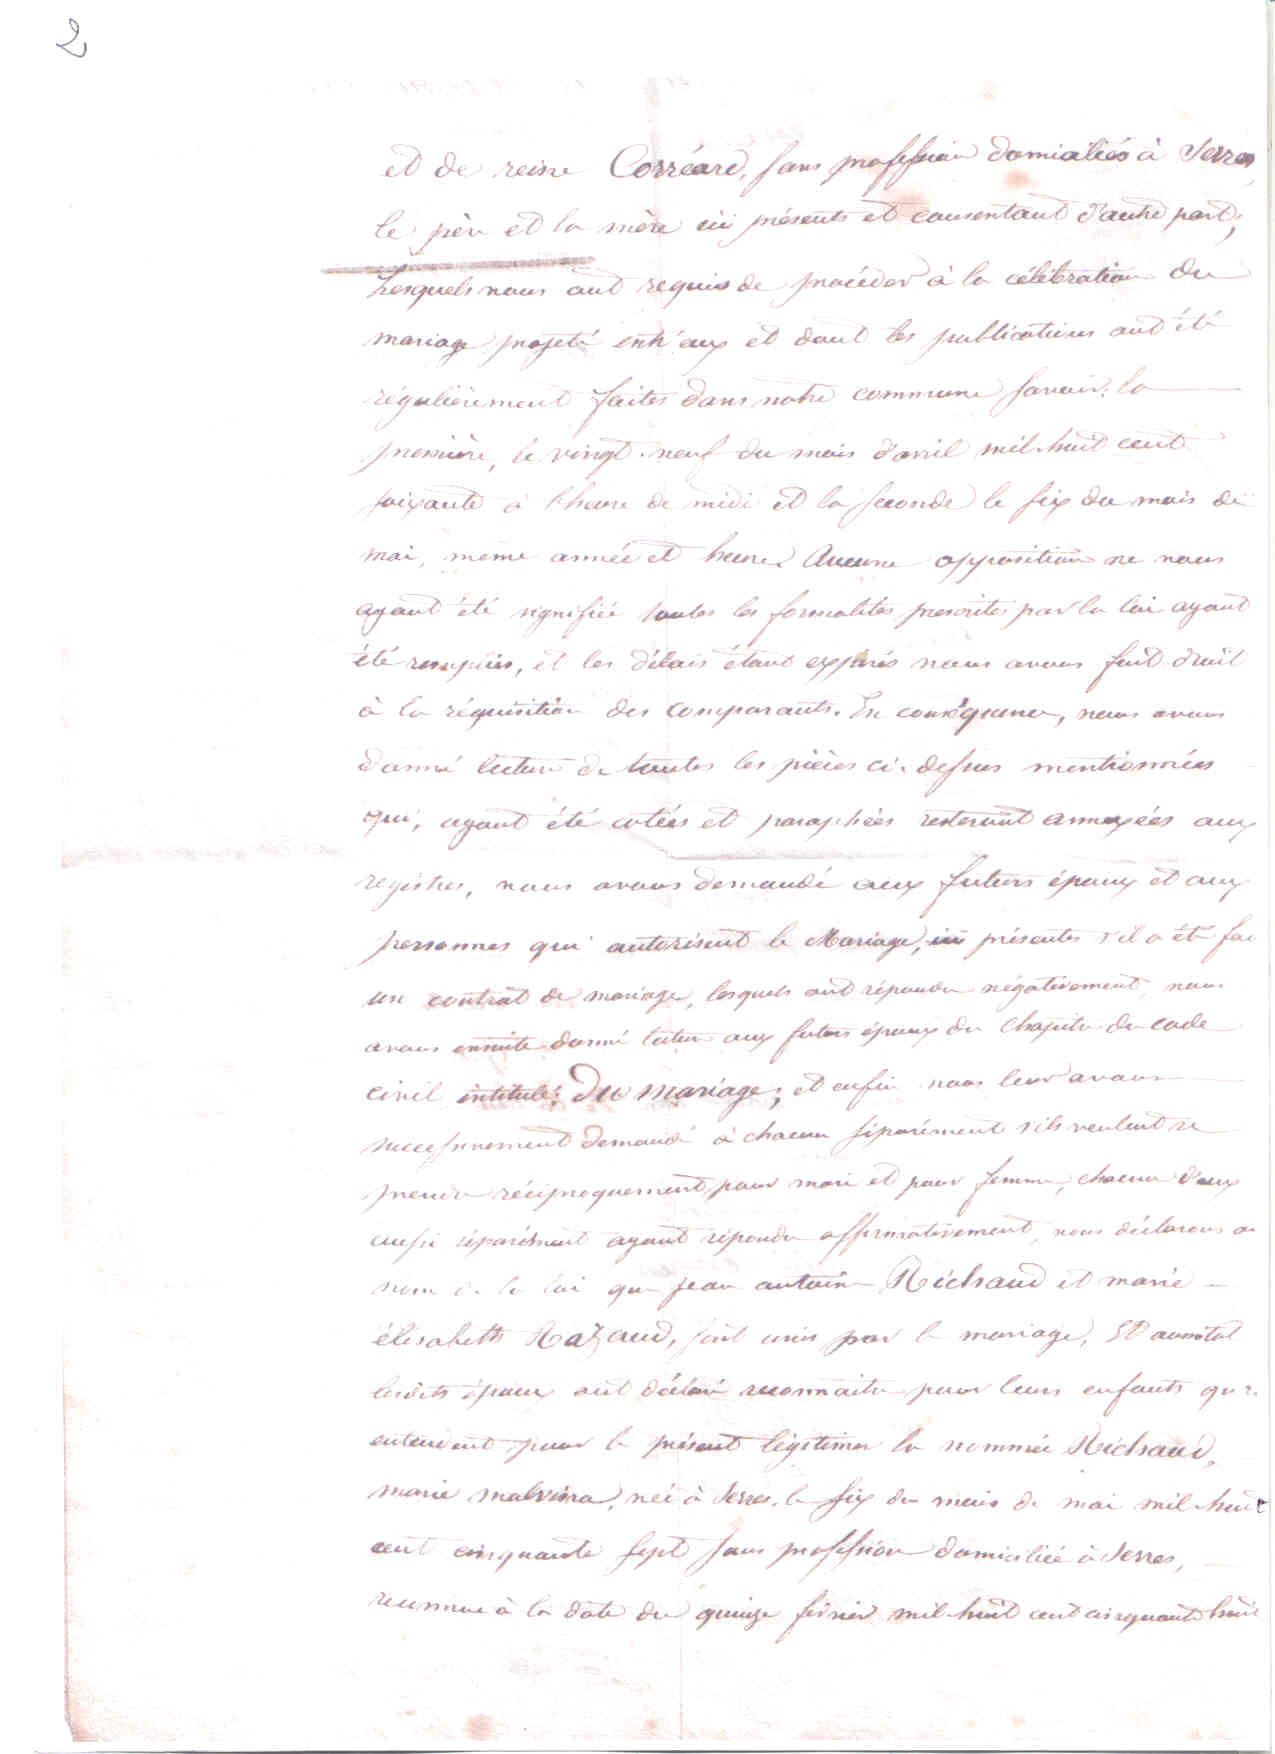 2
et de reine Corréard, sans profession domiciliés à Serres,
le père et la mère ici présents et consentant d'autre part;
Lesquels nous ont requis de procéder à la célébration du
mariage projeté entr'eux et dont les publications ont été
régulièrement faites dans notre commune savoir: la
première, le vingt-neuf du mois d'avril mil-huit cent
soixante à l'heure de midi et la seconde le six du mois de
mai, même année et heure. Aucune opposition ne nous
ayant été signifiée toutes les formalités prescrites par la loi ayant
été remplies, et les délais étant expirés nous avons fait droit
à la réquisition des comparants. En conséquence, nous avons
donné lecture de toutes les pièces ci-dessus mentionnées
qui, ayant été cotées et paraphées resteront annexées aux
registres, nous avons demandé aux futurs époux et aux
personnes qui autorisent le Mariage, ici présentes s'il a été fai
un contrat de mariage, lesquels ont répondu négativement, nous
avons ensuite donné lecture aux futurs époux du chapitre du code
civil intitulé: Du Mariage; et enfin nous leur avons
successivement demandé à chacun séparément s'ils veulent se
prendre réciproquement pour mari et pour femme, chacun d'eux
aussi séparément ayant répondu affirmativement, nous déclarons au
nom de la loi que jean antoine Richaud et marie
élisabeth Razaud, sont unis par le mariage, Et aussitôt
lesdits époux ont déclaré reconnaitre pour leurs enfants qu'
entendent pour le présent légitimer la nommée Richaud,
marie malvina, née à Serres, le six du mois de mai mil-huit
cent cinquante sept sans profession domiciliée à Serres,
reconnue à la date du quinze février mil-huit cent cinquante huit